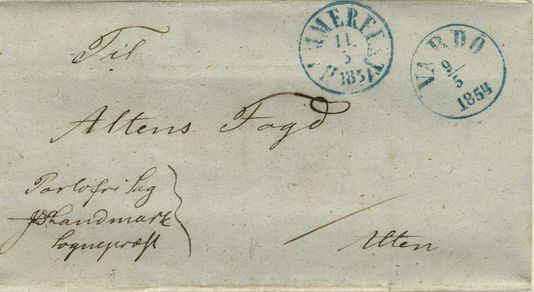 Til
HAMMERFEST
11
5
1854
VARDÖ
9/5
1854
Altens Fogd
Portofri Sag
Landmark
Sognepræst
Alten